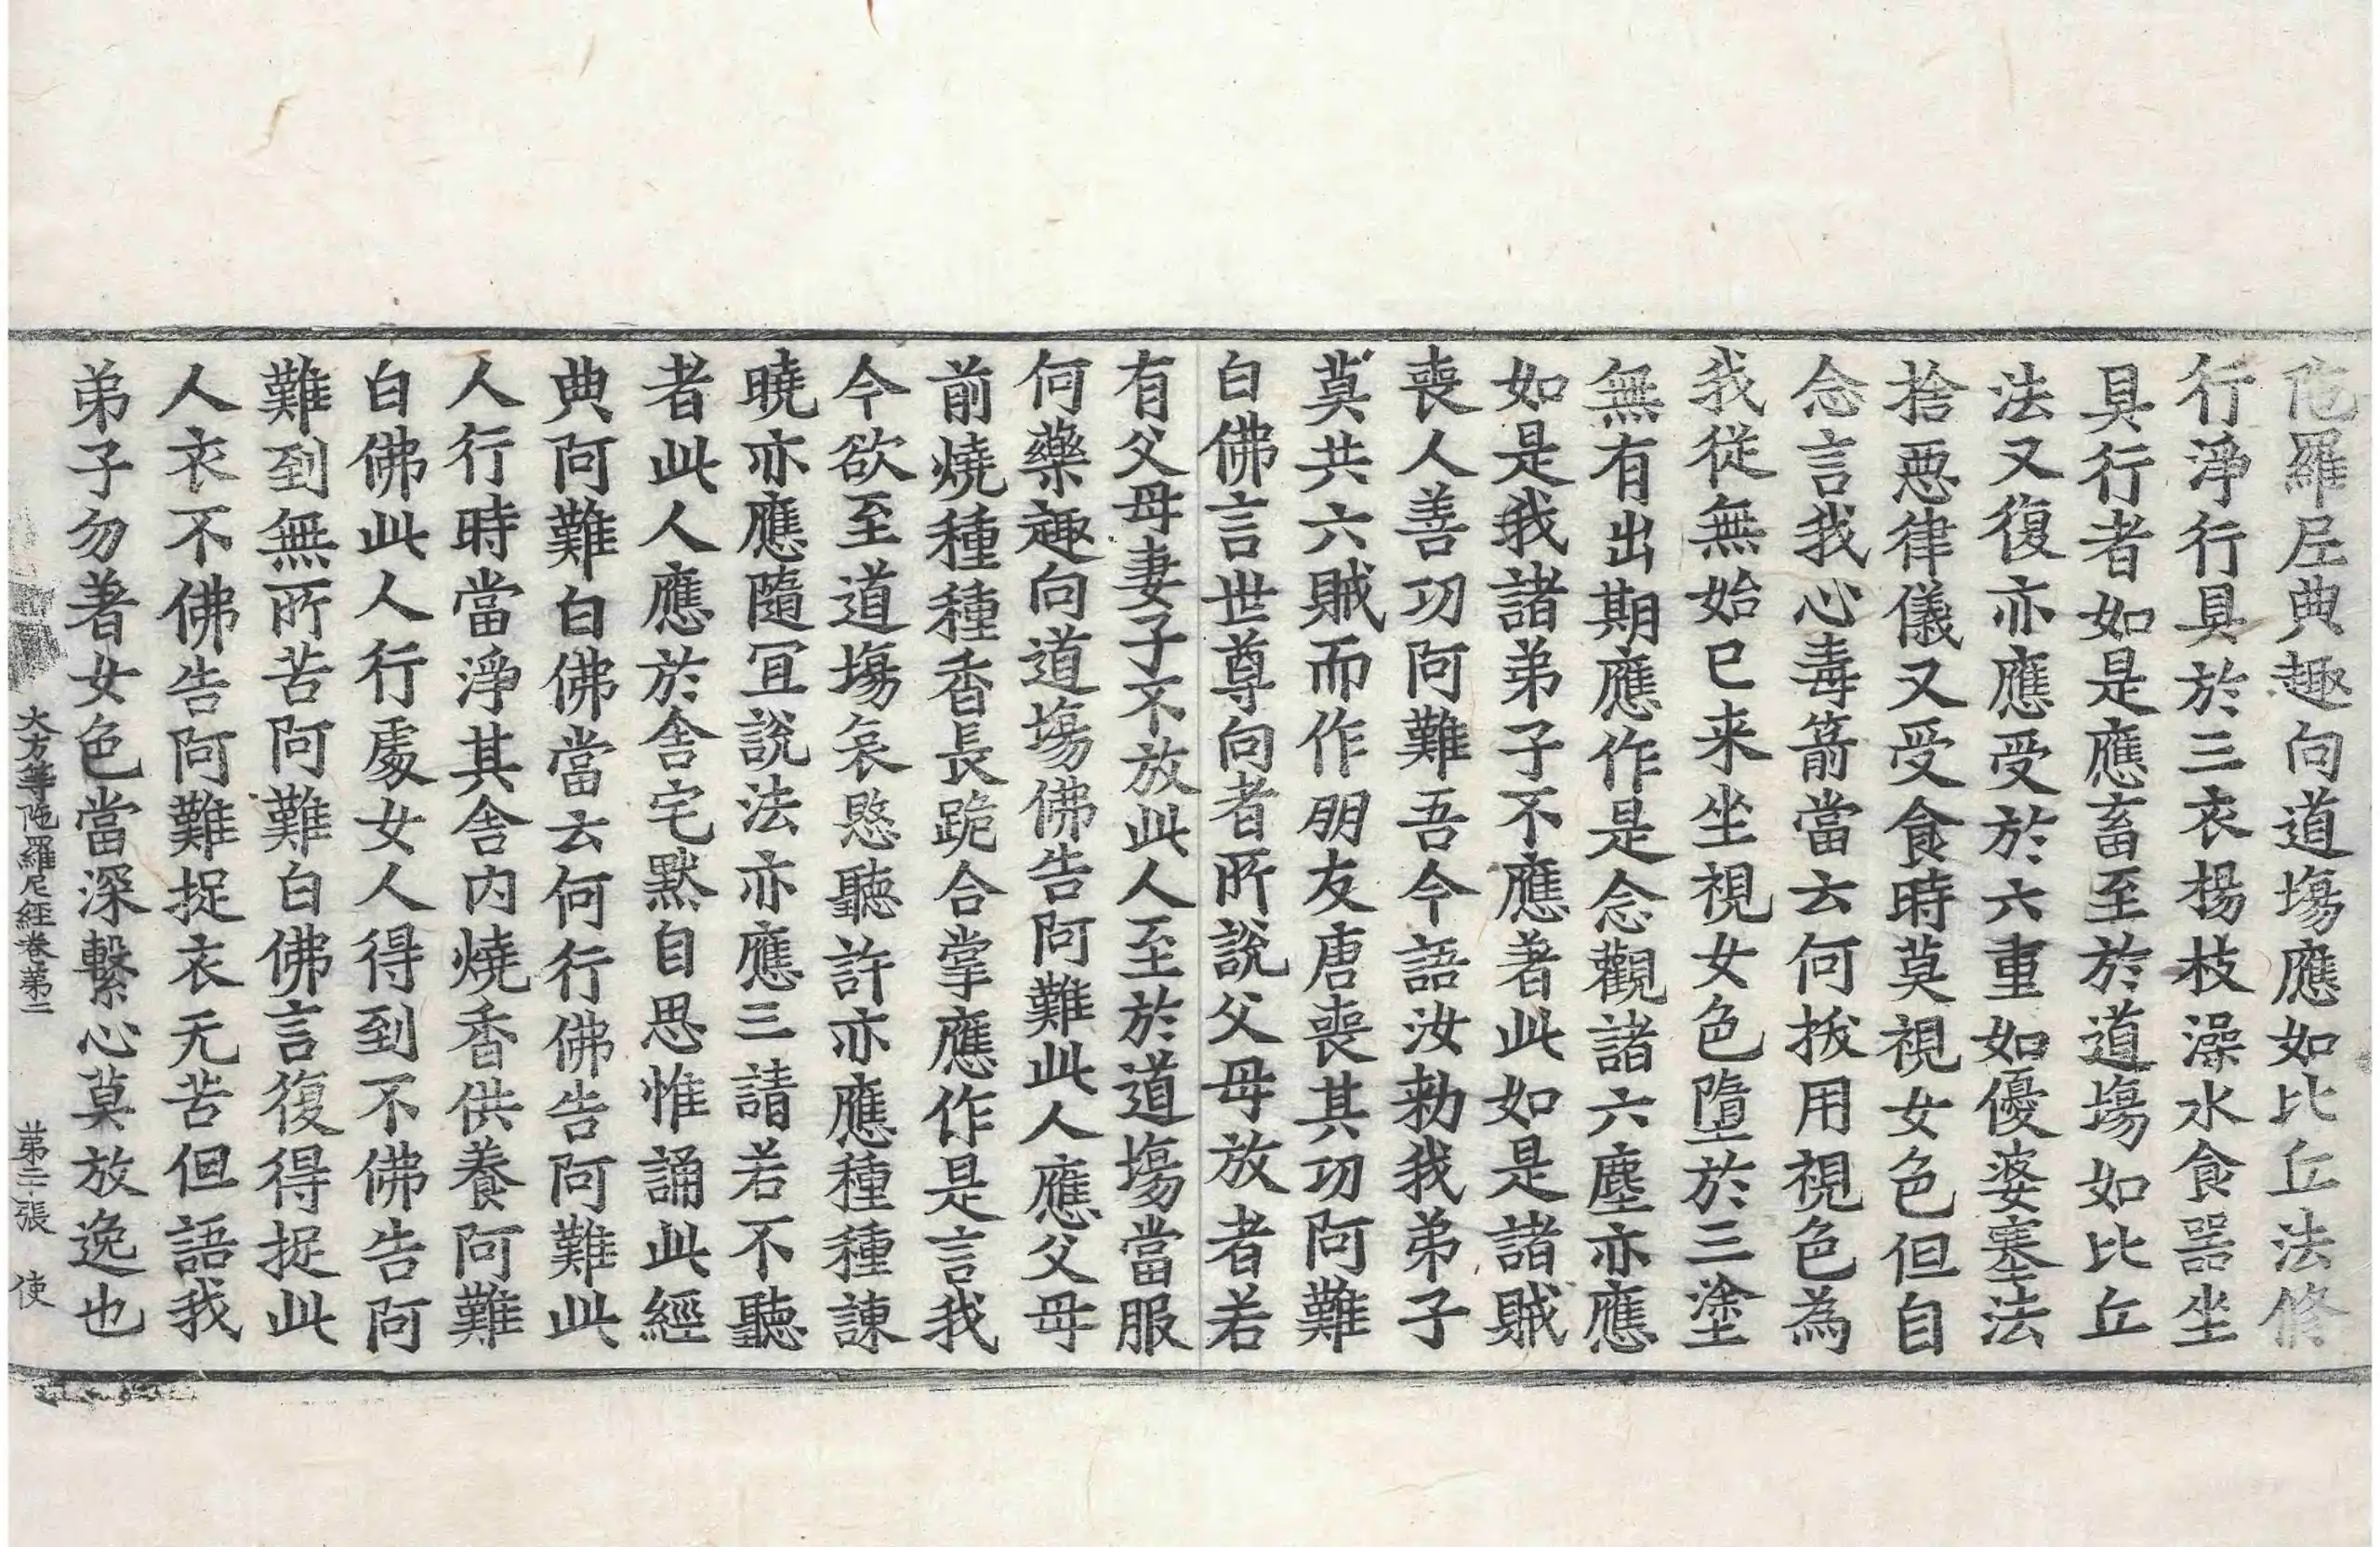 陁羅尼典趣向道場應如比丘法修
行淨行具於三衣揚枝澡水食器坐
具行者如是應畜至於道場如比丘
法又復亦應受於六重如優婆塞法
捨惡律儀又受食時莫視女色但自
念言我心毒箭當云何拔用視色為
我從無始已来坐視女色墮於三塗
無有出期應作是念觀諸六塵亦應
如是我諸弟子不應著此如是諸賊
喪人善功阿難吾今語汝勑我弟子
莫共六賊而作朋友唐喪其功阿難
白佛言世尊向者所說父母放者若
有父母妻子不放此人至於道場當服
何藥趣向道場佛告阿難此人應父母
前燒種種香長跪合掌應作是言我
今欲至道場哀愍聽許亦應種種諫
曉亦應隨冝說法亦應三請若不聽
者此人應於舍宅默自思惟誦此經
典阿難白佛當云何行佛告阿難此
人行時當淨其舍内燒香供養阿難
白佛此人行處女人得到不佛告阿
難到無所苦阿難白佛言復得捉此
人衣不佛告阿難捉衣无苦但語我
弟子勿著女色當深繫心莫放逸也
大方等陁羅尼經卷第二 第二十張 使